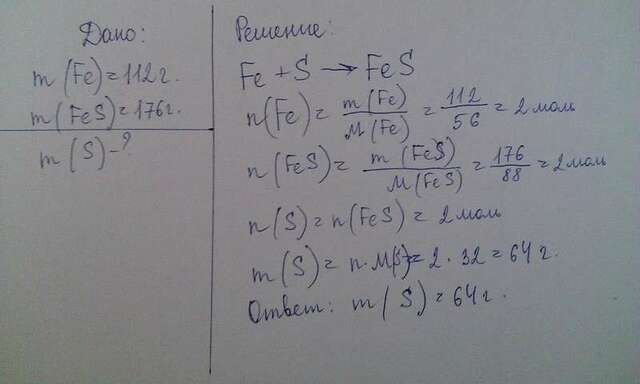 Дано:
m(Fe) = 112 г.
m(FeS) = 176 г.
m(S) - ?
Решение:
Fe + S → FeS
n(Fe) = m(Fe) / M(Fe) = 112 / 56 = 2 моль
n(FeS) = m(FeS) / M(FeS) = 176 / 88 = 2 моль
n(S) = n(FeS) = 2 моль
m(S) = n · M(S) = 2 · 32 = 64 г.
Ответ: m(S) = 64 г.